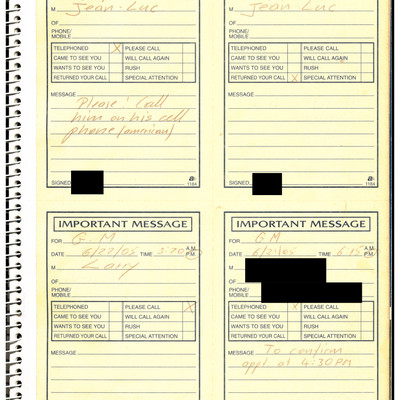 M Jean-Luc
OF
PHONE/
MOBILE
TELEPHONED X PLEASE CALL
CAME TO SEE YOU WILL CALL AGAIN
WANTS TO SEE YOU RUSH
RETURNED YOUR CALL SPECIAL ATTENTION
MESSAGE
Please call
him on his cell
phone (american)
SIGNED 1184
M Jean Luc
OF
PHONE/
MOBILE
TELEPHONED PLEASE CALL
CAME TO SEE YOU WILL CALL AGAIN
WANTS TO SEE YOU RUSH
RETURNED YOUR CALL X SPECIAL ATTENTION
MESSAGE
SIGNED 1184
IMPORTANT MESSAGE
FOR G.M
DATE 6/22/05 TIME 5:20 A.M.
P.M.
M Larry
OF
PHONE/
MOBILE
TELEPHONED PLEASE CALL X
CAME TO SEE YOU WILL CALL AGAIN
WANTS TO SEE YOU RUSH
RETURNED YOUR CALL SPECIAL ATTENTION
MESSAGE
IMPORTANT MESSAGE
FOR GM
DATE 6/21/05 TIME 6:15 A.M.
P.M.
M
OF
PHONE/
MOBILE
TELEPHONED X PLEASE CALL
CAME TO SEE YOU WILL CALL AGAIN
WANTS TO SEE YOU RUSH
RETURNED YOUR CALL SPECIAL ATTENTION
MESSAGE To confirm
appt at 4:30 PM